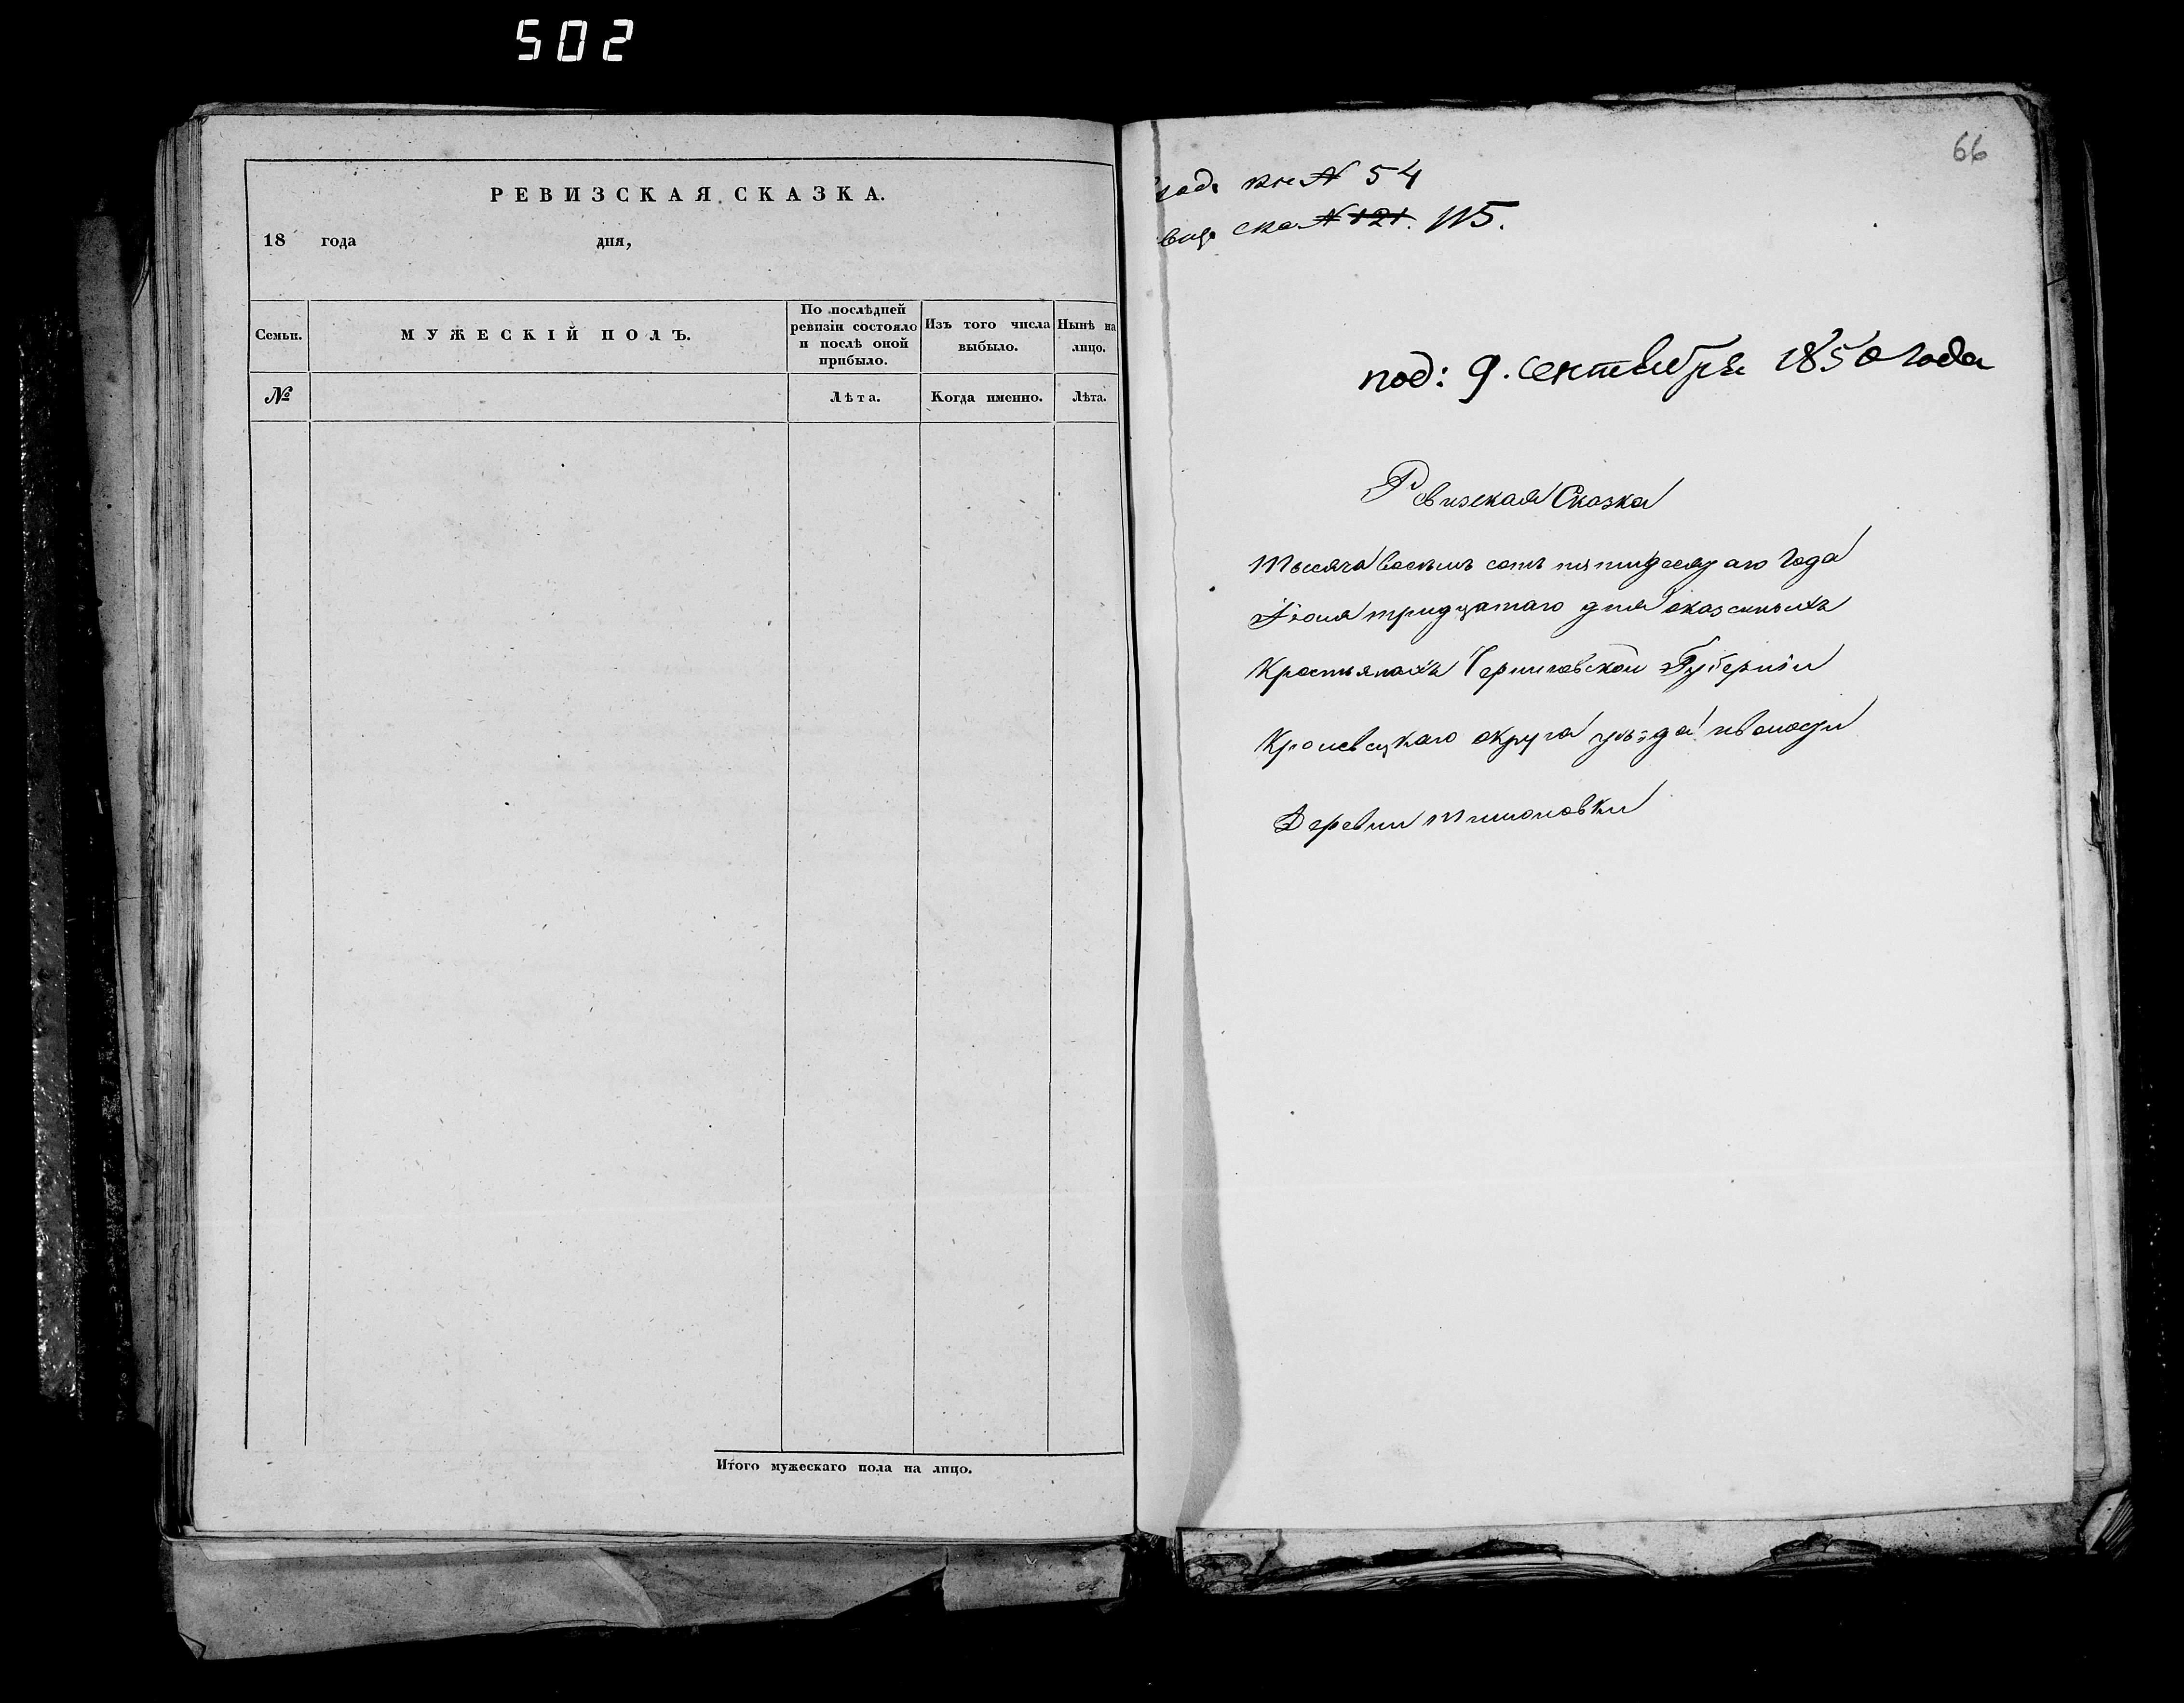 502
РЕВИЗСКАЯ СКАЗКА.
18 года дня,
Семьи.
МУЖЕСКІЙ ПОЛЪ.
По послѣдней ревизіи состояло и послѣ оной прибыло.
Изъ того числа выбыло.
Нынѣ на лицо.
№
Лѣта.
Когда именно.
Лѣта.
Итого мужескаго пола на лицо.
66
кн № 54
ска № 121. 115.
под: 9. сентября 1850 года
Ревизская Сказка
Тысяча восемь сотъ пятидесятаго года
тридцатаго дня оказенныхъ
Крестьянахъ Черниговской Губерніи
Кролевецкаго округа уѣзда иволости
Деревни